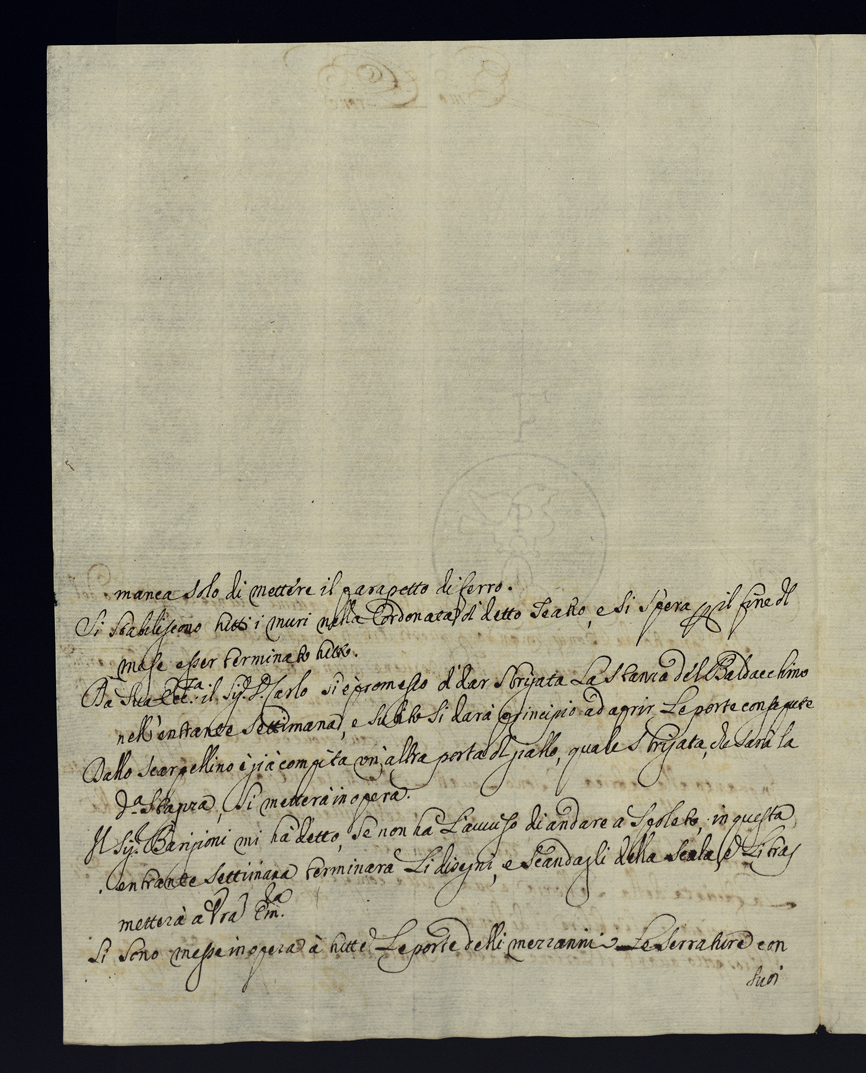 manca solo di mettere il parapetto di ferro.
Si stabiliscono tutti i muri nella Cordonata di detto Teatro, e si spera p il fine dl
mese esser terminato tutto.
Da Sua Ecc.za il Sig. D. Carlo si è promesso di dar sbrijata La stanza del Baldacchino
nell'entrante Settimana, e subito si darà principio ad aprir Le porte consapute
Dallo Scarpellino è già compita un altra porta di giallo, quale sbrijata, che sarà la
d.a stanza, si metterà in opera.
Il Sig.r Barigioni mi hà detto, se non hà L'avviso di andare a Spoleto, in questa
entrante Settimana terminarà Li disegni, e scandagli della Scala, e Li tras
metterà a Vra Em.za
Si sono messe in opera à tutte Le porte delli mezzanini Le serrature con
suoi
P
P